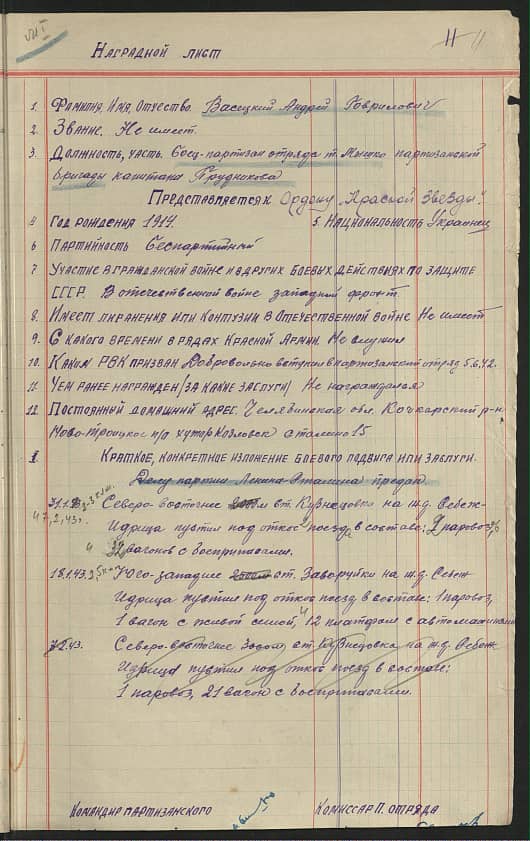 VIII
11 11
Наградной лист
1. Фамилия, Имя, Отчество. Васецкий Андрей Гаврилович
2. Звание. Не имеет.
3. Должность, часть. боец-партизан отряда т. Мышко партизанской
бригады капитана Прудникова
Представляется к Ордену "Красной Звезды".
4 Год рождения 1914. 5. Национальность Украинец
6 Партийность Беспартийный
7 Участие в гражданской войне и в других боевых действиях по защите
СССР. В отечественной войне западный фронт.
8. Имеет ли ранения или контузии в Отечественной войне Не имеет
9. С какого времени в рядах Красной Армии. Не служил
10. Каким РВК призван Добровольно вступил в партизанский отряд 5.6.42.
11. Чем ранее награжден /за какие заслуги/ Не награждался
12. Постоянный домашний адрес. Челябинская обл. Кочкарский р-н.
Ново-Троицкое п/о хутор Козловск Сталина 15
I Краткое, конкретное изложение боевого подвига или заслуги.
Делу партии Ленина-Сталина предан
31.1. Северо-восточнее ст. Кузнецовка на ж.д. Себеж-
и 7.2.43г. Идрица пустил под откос 2 поезда в составе: 2 паровоз
и вагонов с боеприпасами.
18.1.43. Юго-западнее ст. Заваруйки на ж.д. Себеж
Идрица пустил под откос поезд в составе: 1 паровоз,
1 вагон с живой силой, и 12 платформ с автомашинами
7.2.43. Северо-восточнее ст. Кузнецовка на ж.д. Себеж
Идрица пустил под откос поезд в составе:
1 паровоз, 21 вагон с боеприпасами.
Командир партизанского Комиссар П. отряда